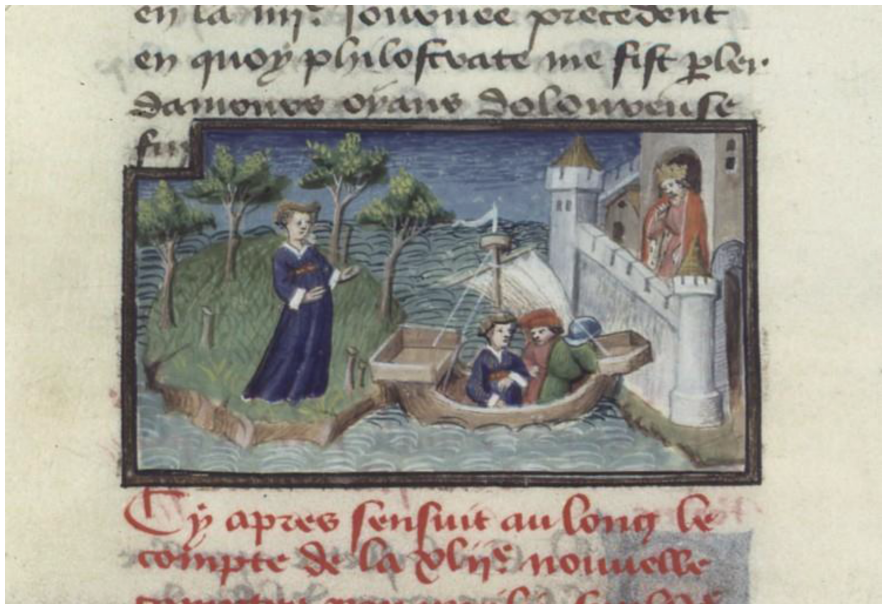 en la iiije Jouvnee precedent
en quoy philostrate me fist pler
damours oyans doloureuse
fin
Cy apres sensuit au long le
compte de la xlije nouvelle